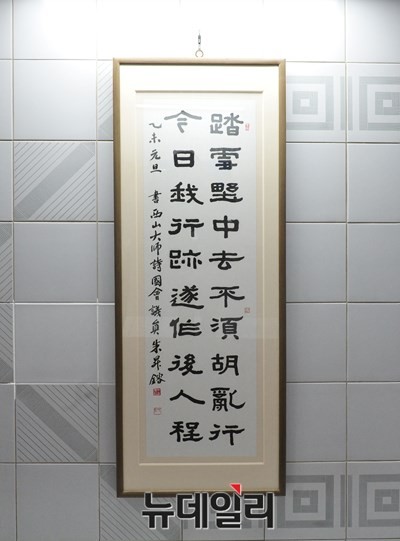 踏雪野中去不須胡亂行
今日我行跡遂作後人程
乙未元旦 書西山大師詩 國會議員 朱昇鎔
뉴데일리